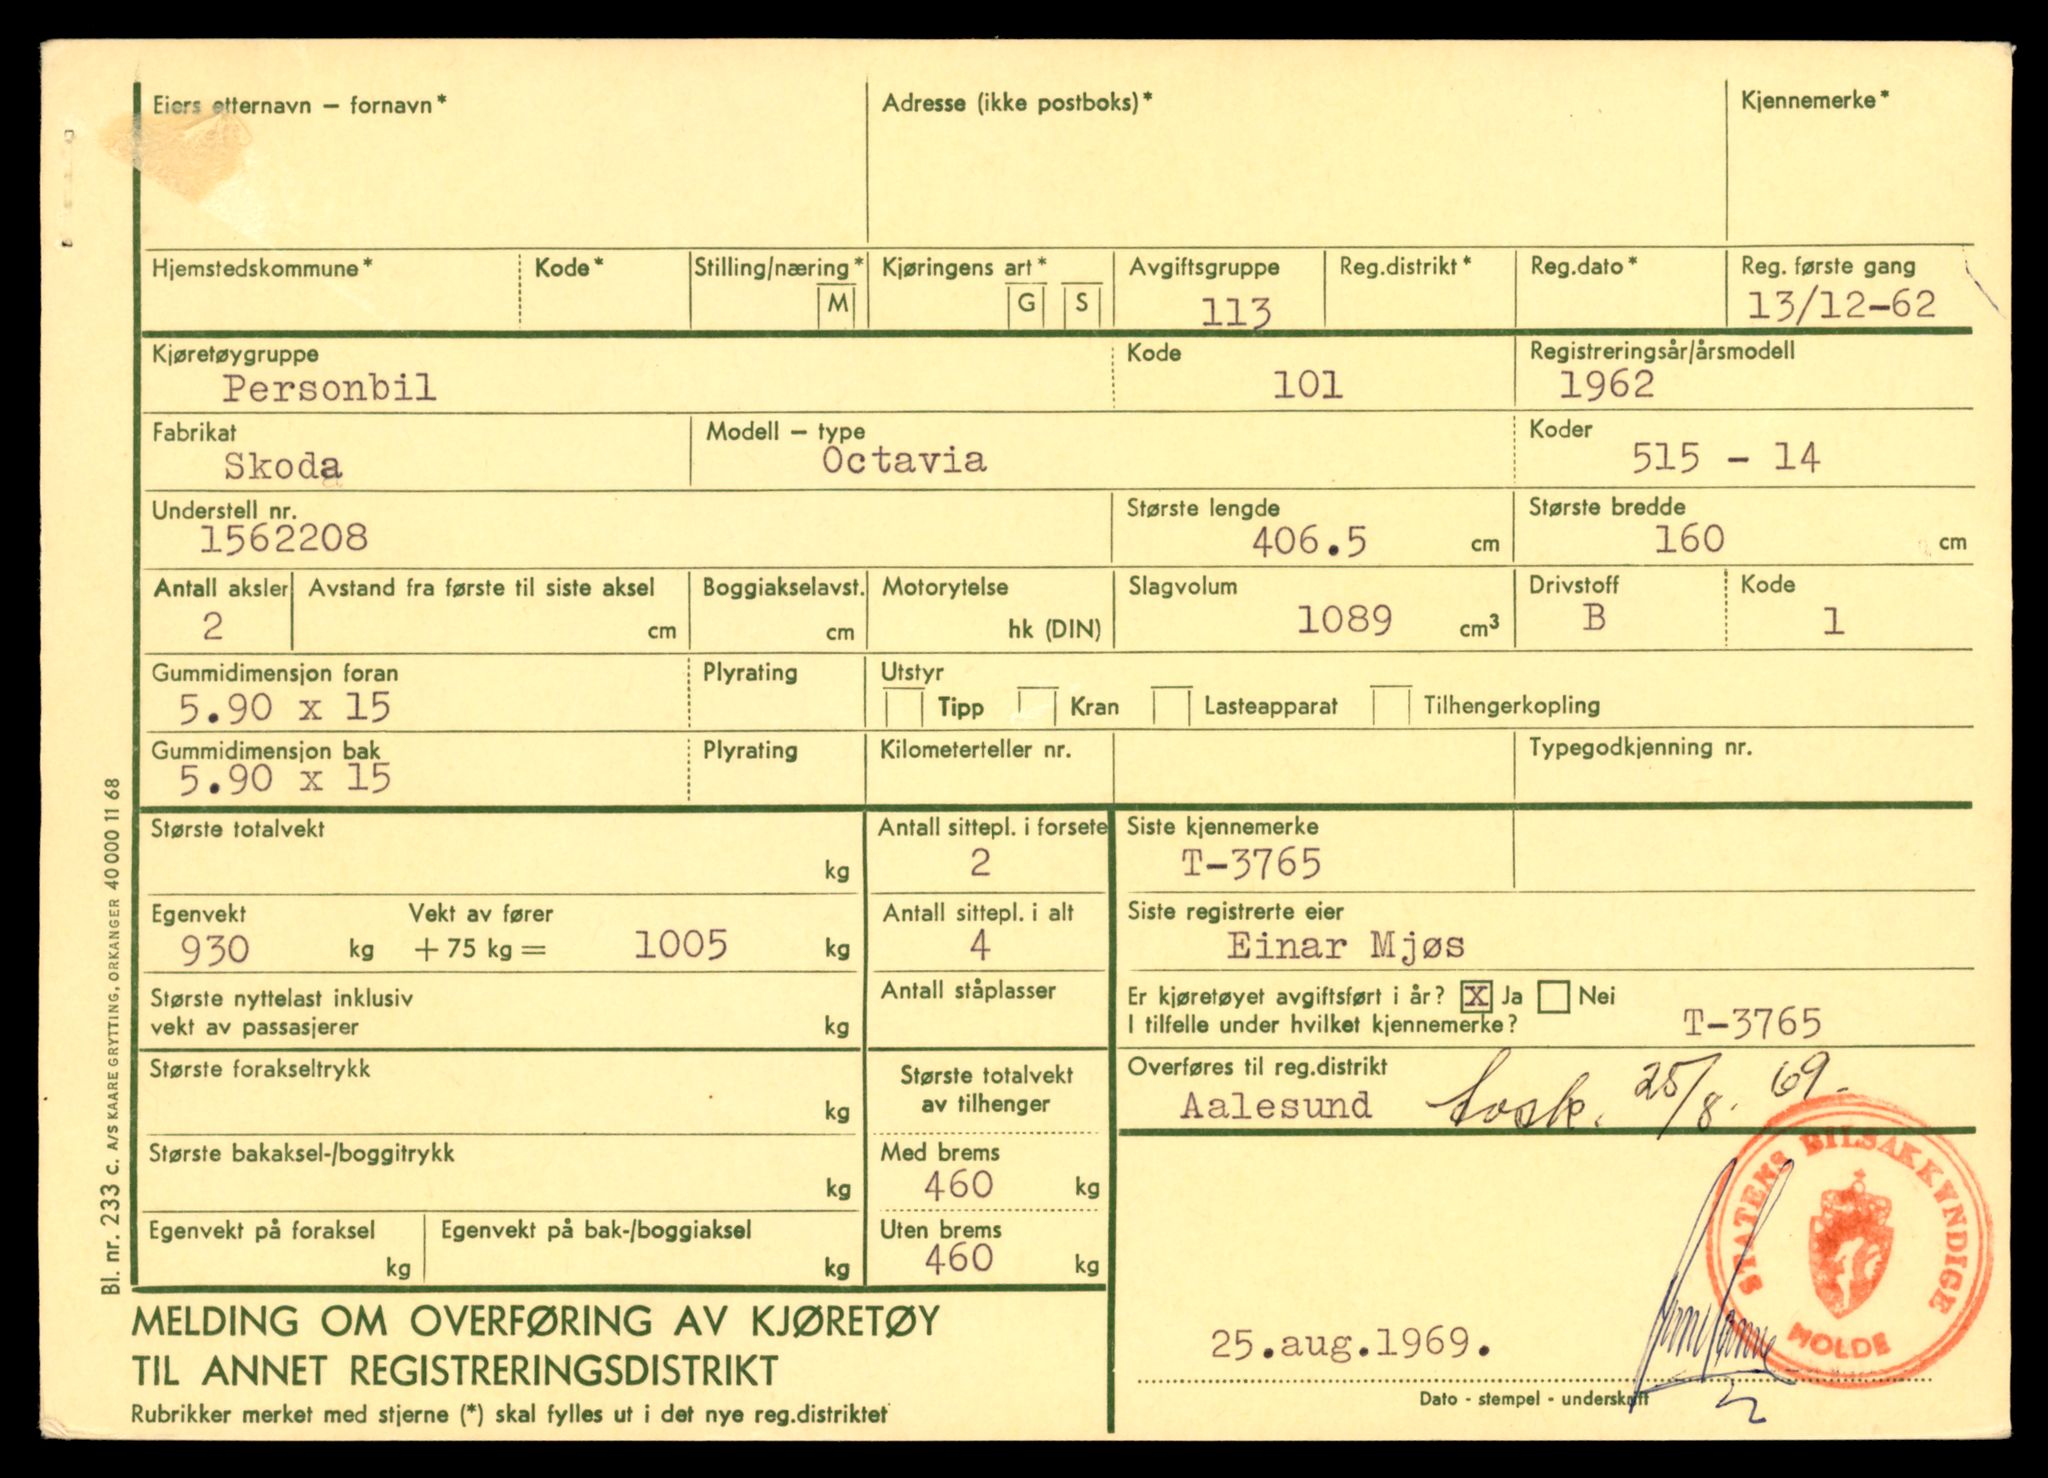 Eiers etternavn — fornavn*
Adresse (ikke postboks)*
Kjennemerke*
Hjemstedskommune*
Kode*
Stilling/næring*
M
Kjøringens art*
G S
Avgiftsgruppe
113
Reg.distrikt*
Reg.dato*
Reg. første gang
13/12-62
Kjøretøygruppe
Personbil
Kode
101
Registreringsår/årsmodell
1962
Fabrikat
Skoda
Modell — type
Octavia
Koder
515 - 14
Understell nr.
1562208
Største lengde
406.5 cm
Største bredde
160 cm
Antall aksler
2
Avstand fra første til siste aksel
cm
Boggiakselavst.
cm
Motorytelse
hk (DIN)
Slagvolum
1089 cm³
Drivstoff
B
Kode
1
Gummidimensjon foran
5.90 x 15
Plyrating
Utstyr
Tipp Kran Lasteapparat Tilhengerkopling
Gummidimensjon bak
5.90 x 15
Plyrating
Kilometerteller nr.
Typegodkjenning nr.
Største totalvekt
kg
Antall sittepl. i forsete
2
Siste kjennemerke
T-3765
Egenvekt
930 kg
Vekt av fører
+ 75 kg = 1005 kg
Antall sittepl. i alt
4
Siste registrerte eier
Einar Mjøs
Største nyttelast inklusiv
vekt av passasjerer
kg
Antall ståplasser
Er kjøretøyet avgiftsført i år? X Ja Nei
I tilfelle under hvilket kjennemerke? T-3765
Største forakseltrykk
kg
Største totalvekt
av tilhenger
Overføres til reg.distrikt
Aalesund 25/8. 69.
Største bakaksel-/boggitrykk
kg
Med brems
460 kg
Egenvekt på foraksel
kg
Egenvekt på bak-/boggiaksel
kg
Uten brems
460 kg
STATENS BILSAKKYNDIGE
MOLDE
25.aug.1969.
Dato - stempel - underskrift
MELDING OM OVERFØRING AV KJØRETØY
TIL ANNET REGISTRERINGSDISTRIKT
Rubrikker merket med stjerne (*) skal fylles ut i det nye reg.distriktet
Bl. nr. 233 C. A/S KAARE GRYTTING, ORKANGER 40 000 11 68